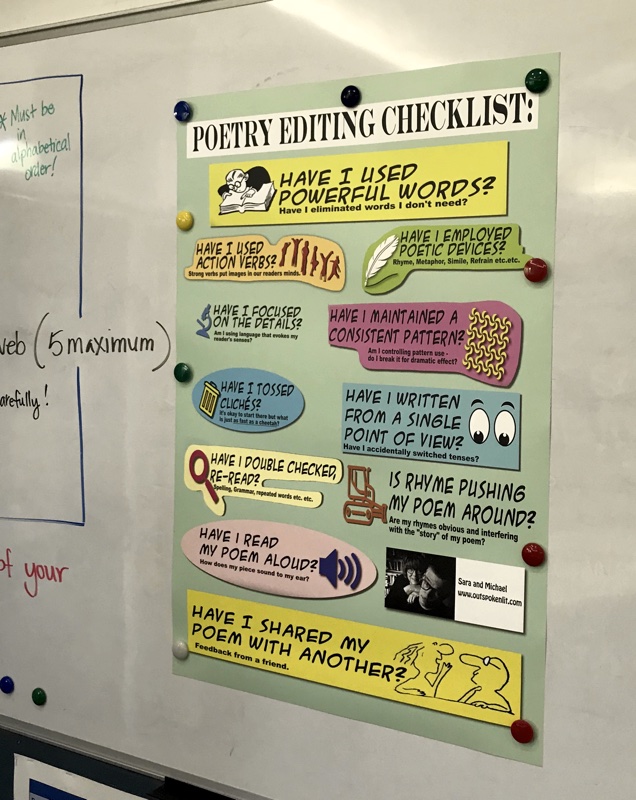 * Must be
in
alphabetical
order!
web (5 maximum)
carefully!
of your
POETRY EDITING CHECKLIST:
HAVE I USED
POWERFUL WORDS?
Have I eliminated words I don't need?
HAVE I USED
ACTION VERBS?
Strong verbs put images in our readers minds.
HAVE I EMPLOYED
POETIC DEVICES?
Rhyme, Metaphor, Simile, Refrain etc.etc.
HAVE I FOCUSED
ON THE DETAILS?
Am I using language that evokes my
reader's senses?
HAVE I MAINTAINED A
CONSISTENT PATTERN?
Am I controlling pattern use -
do I break it for dramatic effect?
HAVE I TOSSED
CLICHÉS?
It's okay to start there but what
is just as fast as a cheetah?
HAVE I WRITTEN
FROM A SINGLE
POINT OF VIEW?
Have I accidentally switched tenses?
HAVE I DOUBLE CHECKED,
RE-READ?
Spelling, Grammar, repeated words etc. etc.
IS RHYME PUSHING
MY POEM AROUND?
Are my rhymes obvious and interfering
with the "story" of my poem?
HAVE I READ
MY POEM ALOUD?
How does my piece sound to my ear?
Sara and Michael
www.outspokenlit.com
HAVE I SHARED MY
POEM WITH ANOTHER?
Feedback from a friend.